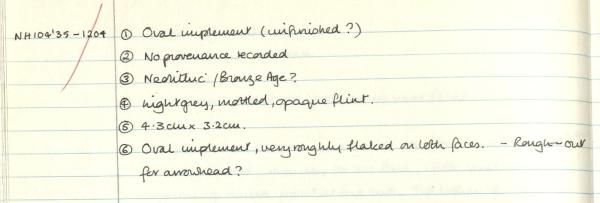 NH104'35-1204 ① Oval implement (unfinished?)
② No provenance recorded
③ Neolithic / Bronze Age?
④ lightgrey, mottled, opaque flint.
⑤ 4.3cm x 3.2cm.
⑥ Oval implement, very roughly flaked on both faces. - Rough-out
for arrowhead?